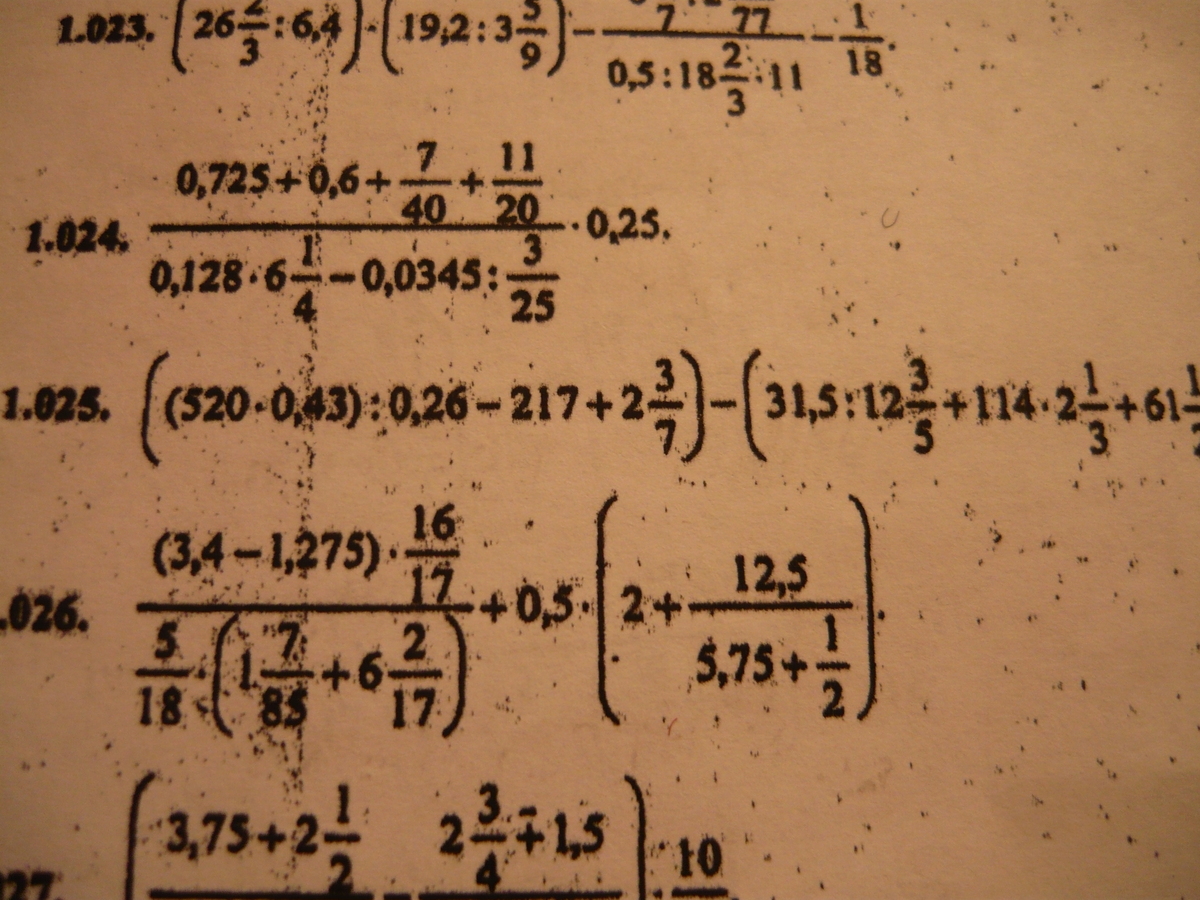 1.023. (26 2/3 : 6,4) · (19,2 : 3 5/9) − 7 77 / 0,5 : 18 2/3 · 11 − 1/18.
1.024. (0,725 + 0,6 + 7/40 + 11/20) / (0,128 · 6 1/4 − 0,0345 : 3/25) · 0,25.
1.025. ((520 · 0,43) : 0,26 − 217 + 2 3/7) − (31,5 : 12 3/5 + 114 · 2 1/3 + 61
.026. ((3,4 − 1,275) · 16/17) / (5/18 · (1 7/85 + 6 2/17)) + 0,5 · (2 + 12,5 / (5,75 + 1/2)).
27. (3,75 + 2 1/2 − 2 3/4 + 1,5) · 10